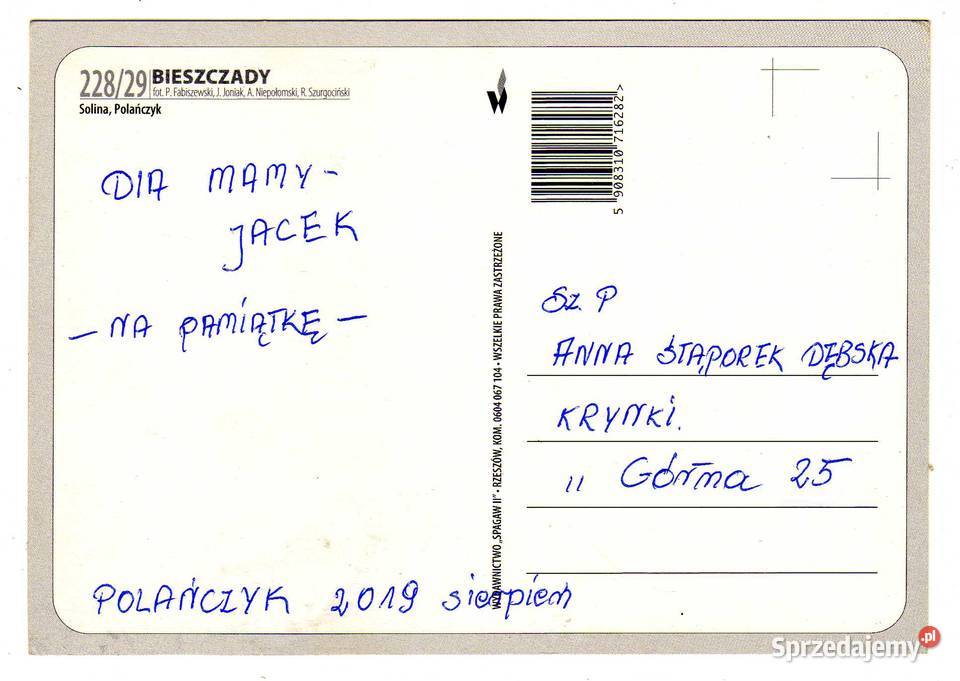 228/29 BIESZCZADY
fot. P. Fabiszewski, J. Joniak, A. Niepołomski, R. Szurgociński
Solina, Polańczyk
DIA MAMY -
JACEK
- NA PAMIĄTKĘ -
POLAŃCZYK 2019 sierpień
WYDAWNICTWO „SPAGAW II" • RZESZÓW, KOM. 0604 067 104 • WSZELKIE PRAWA ZASTRZEŻONE
5 908310 716282 >
Sz. P
ANNA STĄPOREK DĘBSKA
KRYNKI.
" Górna 25
Sprzedajemy.pl